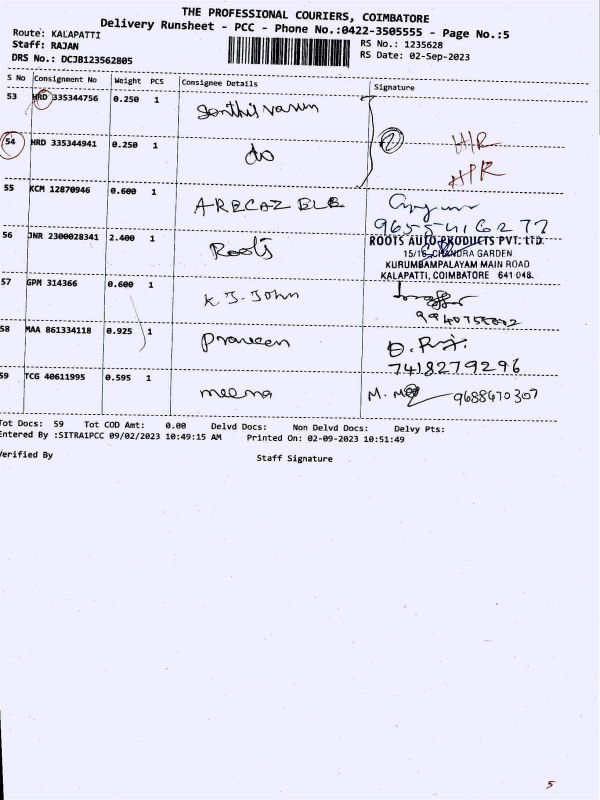 THE PROFESSIONAL COURIERS, COIMBATORE
Delivery Runsheet - PCC - Phone No.:0422-3505555 - Page No.:5
Route: KALAPATTI
Staff: RAJAN
DRS No.: DCJB123562805
RS No.: 1235628
RS Date: 02-Sep-2023
S No Consignment No Weight PCS Consignee Details Signature
53 HRD 335344756 0.250 1 Senthil varun
54 HRD 335344941 0.250 1 do 2 H/R
H/R
55 KCM 12870946 0.600 1
9655416277
56 JNR 2300028341 2.400 1 Roots
ROOTS AUTO PRODUCTS PVT. LTD.
15/16, CHANDRA GARDEN
KURUMBAMPALAYAM MAIN ROAD
KALAPATTI, COIMBATORE 641 048.
57 GPM 314366 0.600 1 K J. John
58 MAA 861334118 0.925 1 Praveen
7418279296
59 TCG 40611995 0.595 1 meena M. 9688470307
Tot Docs: 59 Tot COD Amt: 0.00 Delvd Docs: Non Delvd Docs: Delvy Pts:
Entered By :SITRA1PCC 09/02/2023 10:49:15 AM Printed On: 02-09-2023 10:51:49
Verified By Staff Signature
5